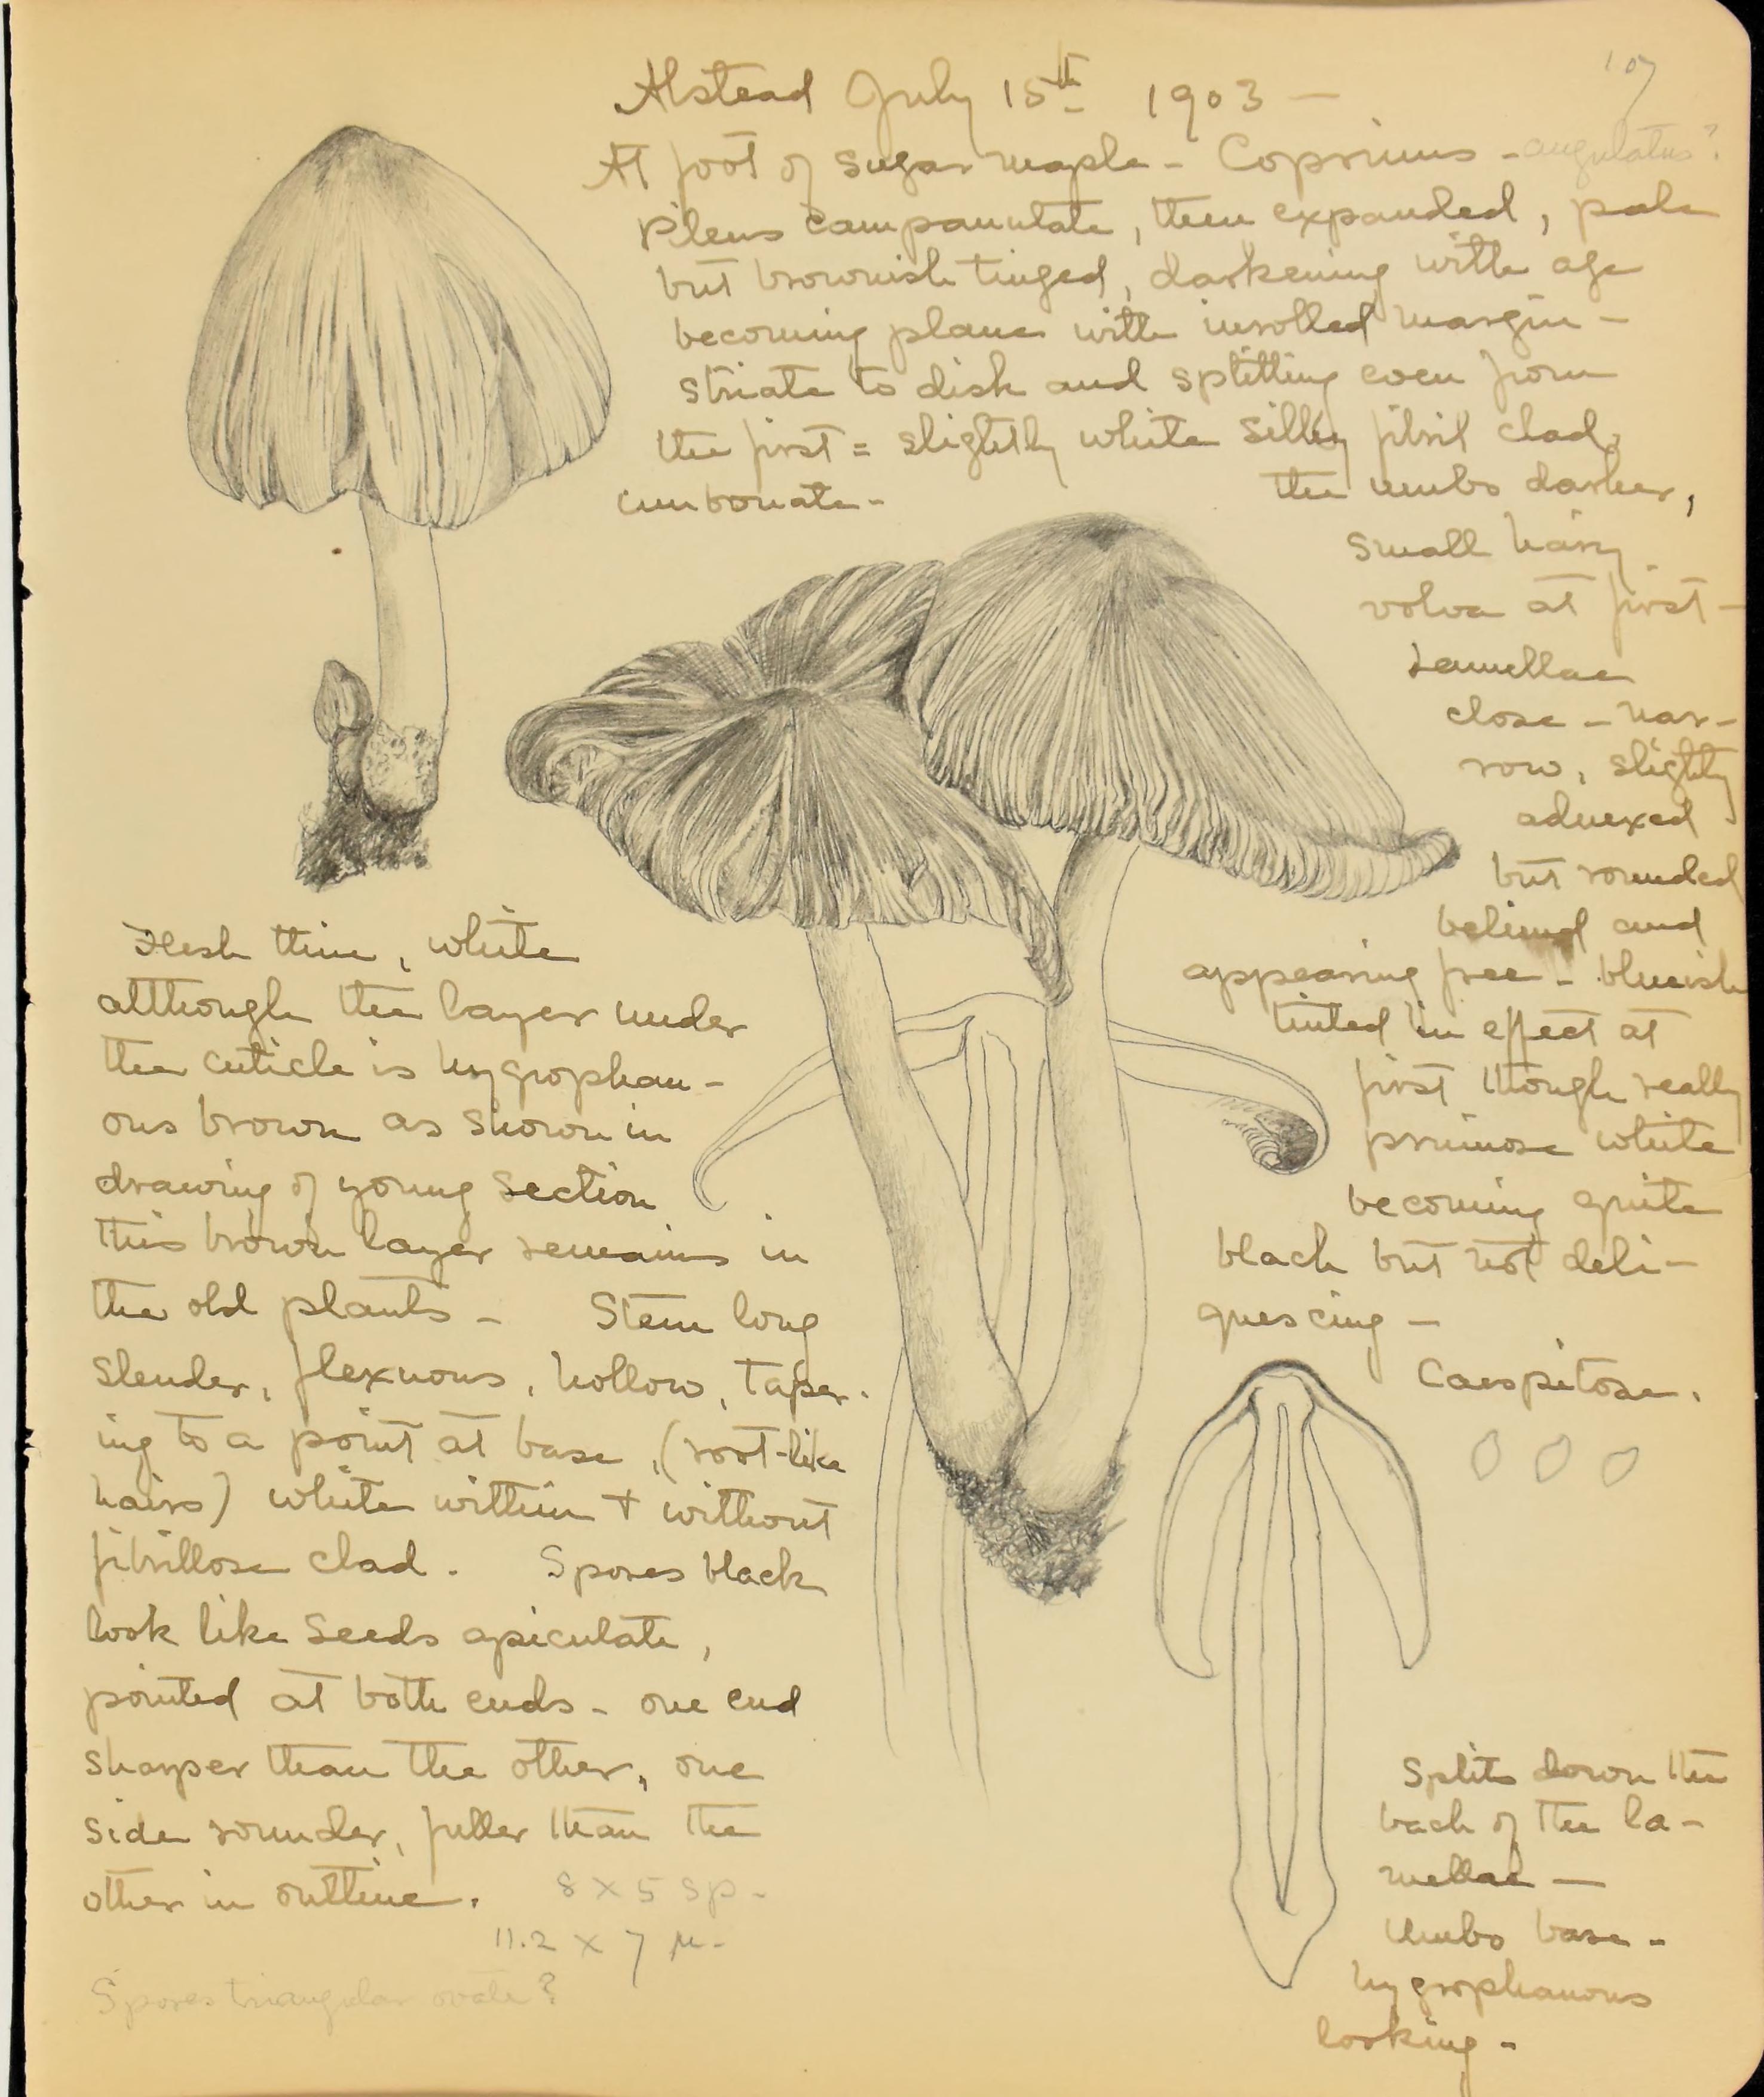 107
Alstead July 15th 1903 —
At foot of sugar maple - Coprinus - angulatus?
Pileus campanulate, then expanded, pale
but brownish tinged, darkening with age
becoming plane with inrolled margin -
striate to disk and splitting even from
the first = slightly white silky fibril clad,
umbonate -
the umbo darker,
small hairy
volva at first -
Lamellae
close - nar-
row, slightly
adnexed
but rounded
behind and
appearing free - bluish
tinted in effect at
first though really
primose white
becoming quite
black but not deli-
quescing -
Caespitose.
Flesh thin, white
although the layer under
the cuticle is hygrophan-
ous brown as shown in
drawing of young section
this brown layer remains in
the old plants - Stem long
slender, flexuous, hollow, taper-
ing to a point at base, (root-like
hairs) white within + without
fibrillose clad. Spores black
look like seeds apiculate,
pointed at both ends - one end
sharper than the other, one
side rounder, fuller than the
other in outline. 8 x 5 sp -
11.2 x 7 µ -
Spores triangular ovate?
Splits down the
back of the la-
mellae —
Umbo base -
hygrophanous
looking -